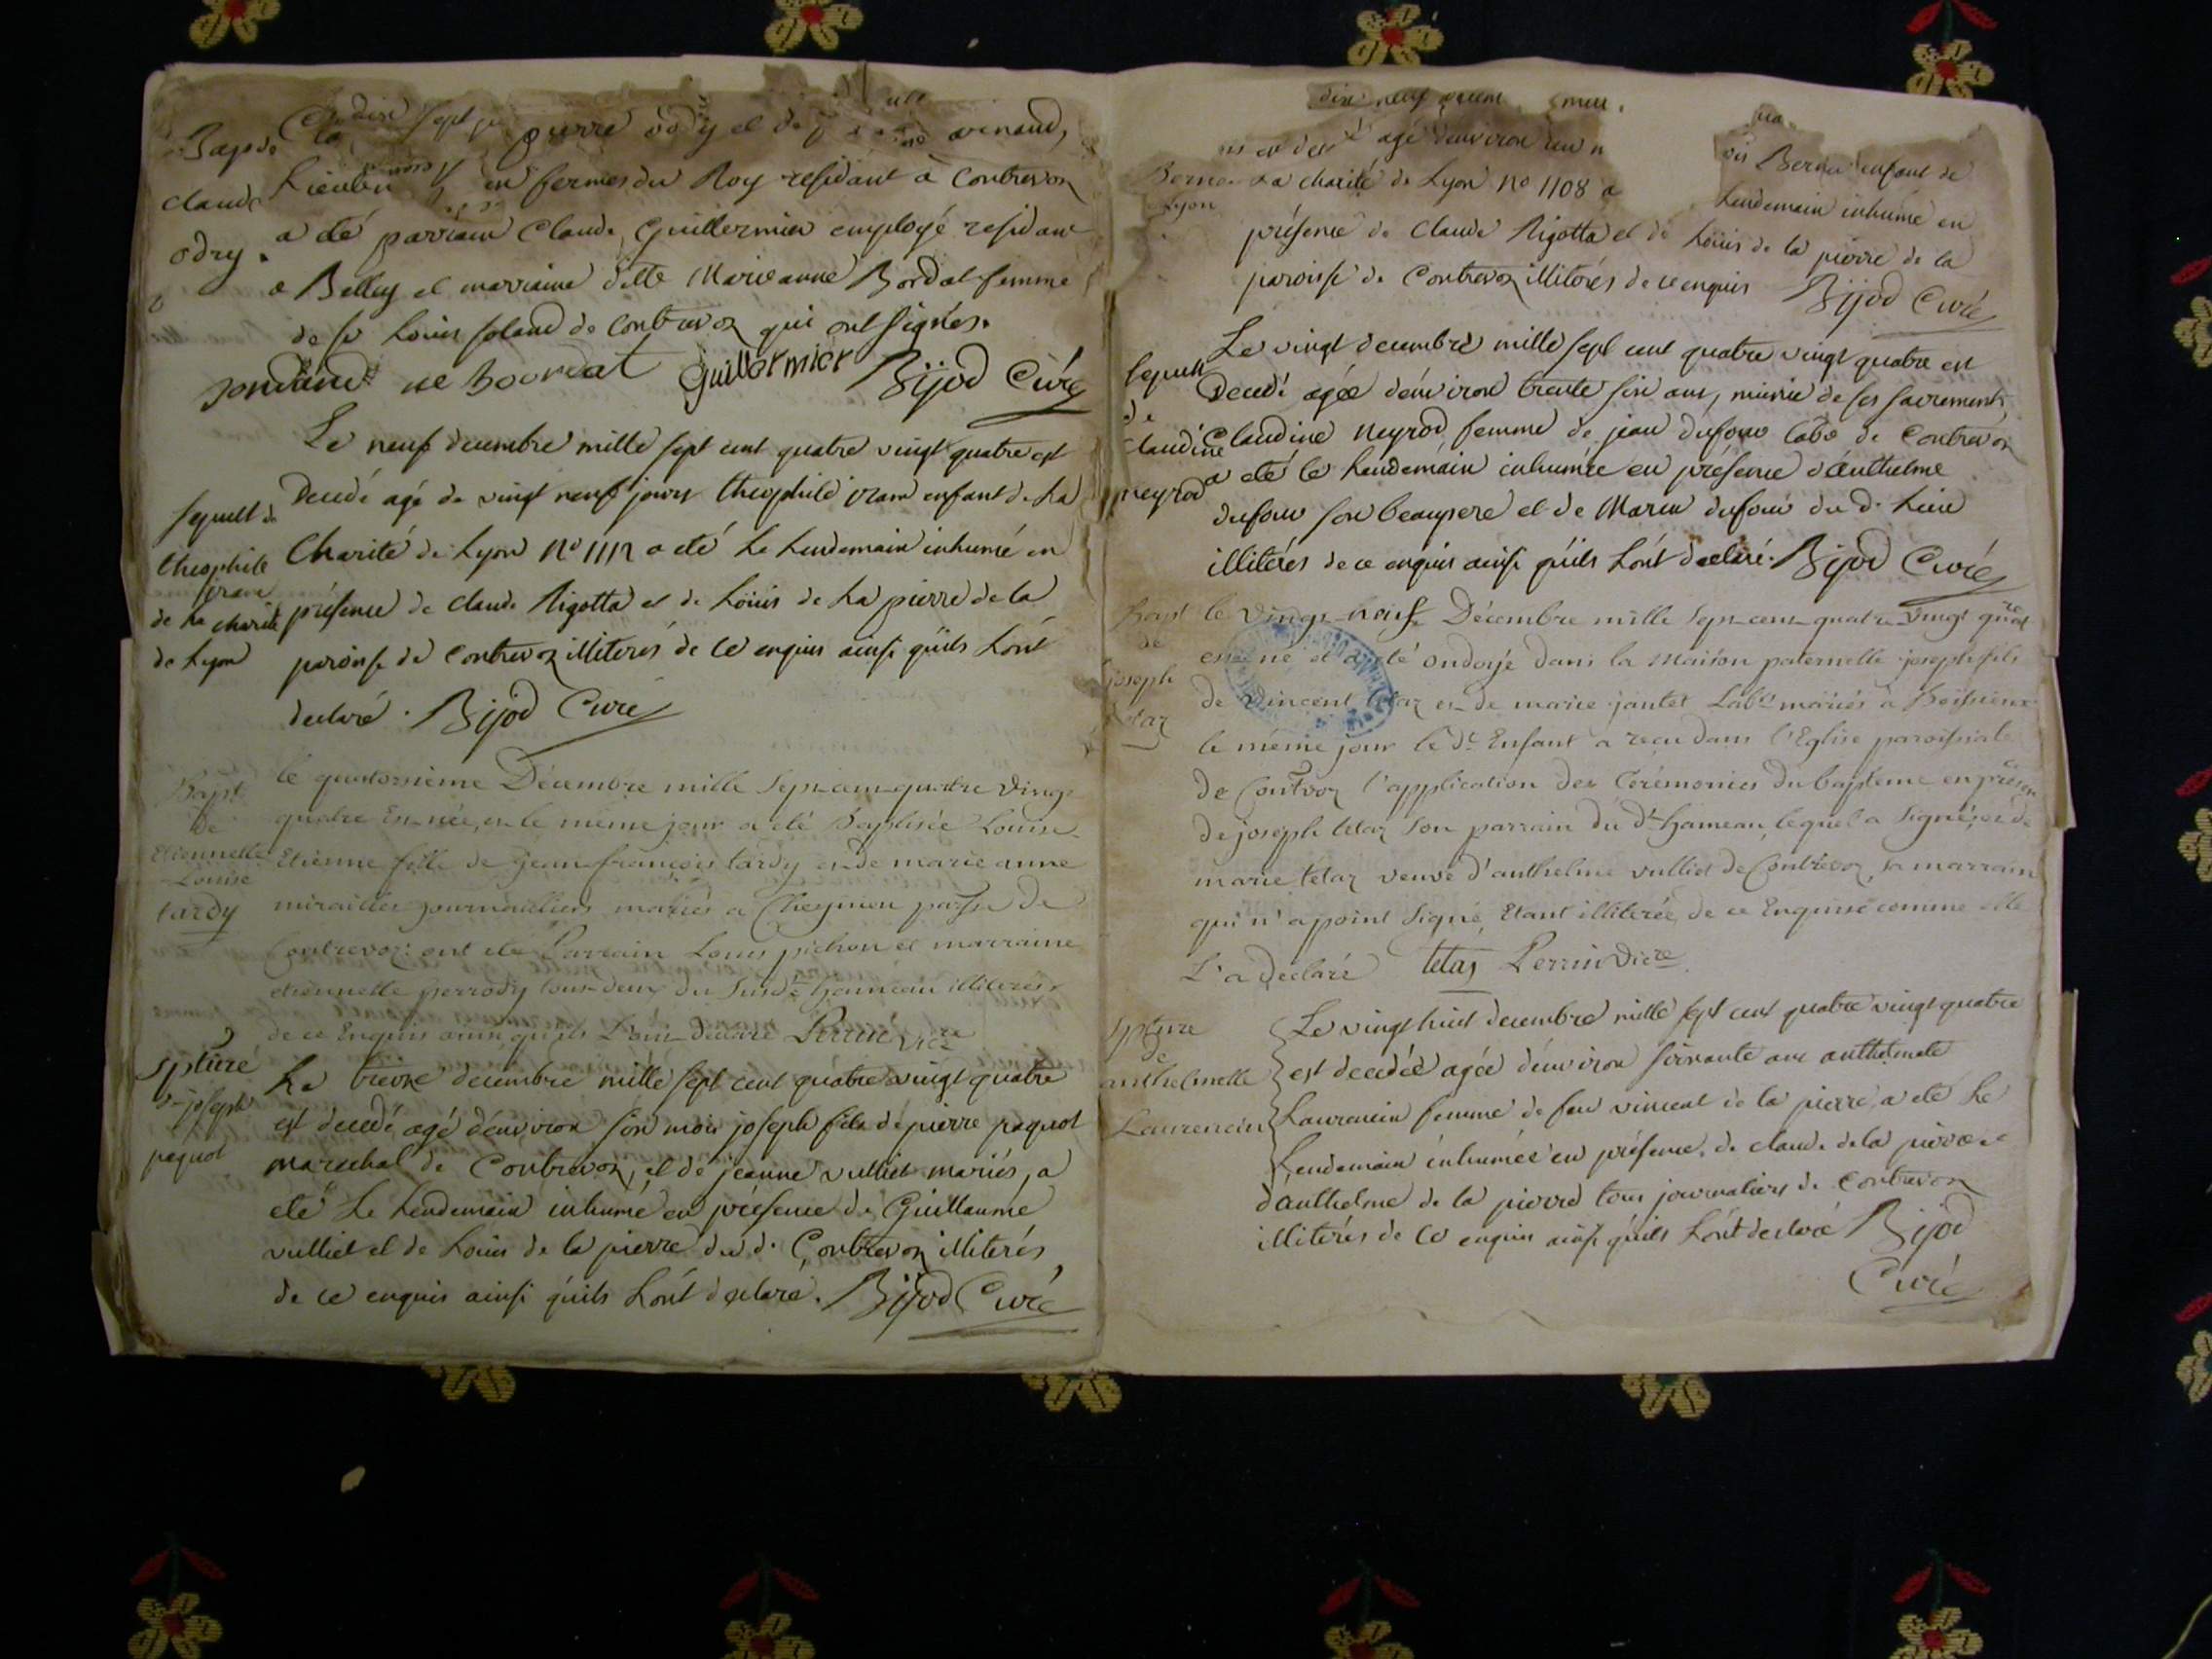 Bapt de
claude
odry.
dix sept
pierre odry et de arnaud,
Lieuten en fermes du Roy residant à Contrevoz
a eté parrain Claude Guillermier employé residant
a Belley et marraine dlle Marieanne Bordat femme
de sr Louis soland de contrevoz qui ont signés.
ne Bourdat Guillermier Bijod Curé
Sepult de
theophile
iram
de la charité
de Lyon
Le neuf decembre mille sept cent quatre vingt quatre est
Decedé agé de vingt neuf jours theophile iram enfant de La
Charité de Lyon No 1112 a eté Le Lendemain inhumé en
présence de claude Rigotta et de Loüis de La pierre de la
paroisse de Contrevoz illiterés de ce enquis ainsi qu'ils L'ont
declaré. Bijod Curé
Bapt
de
Etiennette
Louise
tardy
le quatorzième Décembre mille Sept cent quatre vingt
quatre Est née, et le même jour a été Baptisée Louise
Etienne fille de jean françois tardy et de marie anne
mirailles journailiers mariés a Cheymieu parsse De
Contrevoz: ont été Parrain Louis pichon et marraine
etiennette perrody tous deux du susdt hameau illiterés
de ce Enquis ainsi qu'ils L'ont Déclaré Perrin vicre
Spture
de joseph
paquot
Le treize decembre mille sept cent quatre vingt quatre
est decedé agé d'environ six mois joseph fils de pierre paquot
marechal de Contrevoz, et de jeanne vulliet mariés, a
eté Le Lendemain inhumé en présence de Guillaume
vulliet et de Loüis de la pierre du d. Contrevoz illiterés
de ce enquis ainsi qu'ils L'ont declaré. Bijod Curé
dix neuf decem
agé d'environ un Bernu enfant de
Berne
Lyon
La charité de Lyon No 1108 a Lendemain inhumé en
présence de Claude Rigotta et de Loüis de la pierre de la
paroisse de Contrevoz illiterés de ce enquis Bijod Curé
Sepult
de
Claudine
neyrod
Le vingt decembre mille sept cent quatre vingt quatre est
Decedé agée d'environ trente six ans, munie de ses sacrements
Claudine Neyrod femme de jean dufour Labr de Contrevoz
a eté le Lendemain inhumée en présence d'anthelme
dufour son beaupere et de Marin dufour du d. Lieu
illiterés de ce enquis ainsi qu'ils L'ont declaré. Bijod Curé
Bapt
de
joseph
tetaz
le vingt-neuf Décembre mille Sept-cent-quatre-vingt quatre
est né et a été ondoyé dans la Maison paternelle joseph fils
de vincent tetaz et de marie jantet Labrs mariés a Boissieux
le même jour le dt Enfant a reçu dans l'Eglise paroissiale
de Contrevoz l'application des Cérémonies du bapteme en présence
de joseph tetaz son parrain du dt hameau, lequel a signé, et de
marie tetaz veuve d'anthelme vulliet de Contrevoz, sa marraine
qui n'a point Signé, Etant illiterée, de ce Enquise comme elle
L'a Déclaré tetaz Perrin vicre
Spture
de
anthelmette
Laurencin
Le vingt huit decembre mille sept cent quatre vingt quatre
est decedée agée d'environ soixante ans anthelmette
Laurencin femme de feu vincent de la pierre, a eté Le
Lendemain inhumée en présence de claude de la pierre et
d'anthelme de la pierre tous journaliers de Contrevoz
illiterés de ce enquis ainsi qu'ils L'ont declaré Bijod
Curé